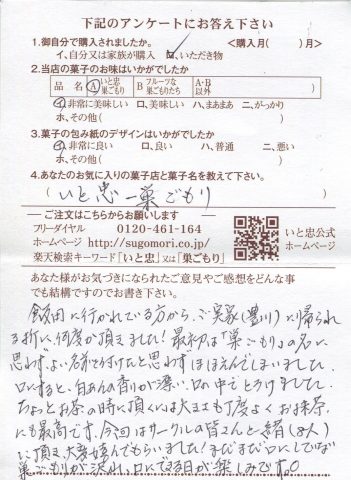 下記のアンケートにお答え下さい
1.御自分で購入されましたか。 <購入月( )月>
イ、自分又は家族が購入 ロ、いただき物
2.当店の菓子のお味はいかがでしたか
品名 A いと忠 巣ごもり B フルーツな 巣ごもりたち A・B 以外
イ、非常に美味しい ロ、美味しい ハ、まあまあ ニ、がっかり
ホ、その他( )
3.菓子の包み紙のデザインはいかがでしたか
イ、非常に良い ロ、良い ハ、普通 ニ、悪い
ホ、その他( )
4.あなたのお気に入りの菓子店と菓子名を教えて下さい。
(いと忠 ー 巣ごもり )
ご注文はこちらからお願いします
フリーダイヤル 0120-461-164
ホームページ http://sugomori.co.jp/
楽天検索キーワード「いと忠」又は「巣ごもり」
いと忠公式
ホームページ
あなた様がお気づきになられたご意見やご感想をどんな事
でも結構ですのでお書き下さい。
飯田に行かれている方から、ご実家(豊川)に帰られ
る折に、何度か頂きました! 最初は「巣ごもり」の名に
思わず、よい名を付けたと思わずほほえんでしまいました。
口にすると、白あんの香りが漂い、口の中でとろけました。
ちょっとお茶の時に頂くには大きさも丁度よくお抹茶
にも最高です。今回はサークルの皆さんと一緒(8人)
に頂き大変喜んでもらいました! まだまだ口にしていない
巣ごもりが沢山、口にできる日が楽しみです。